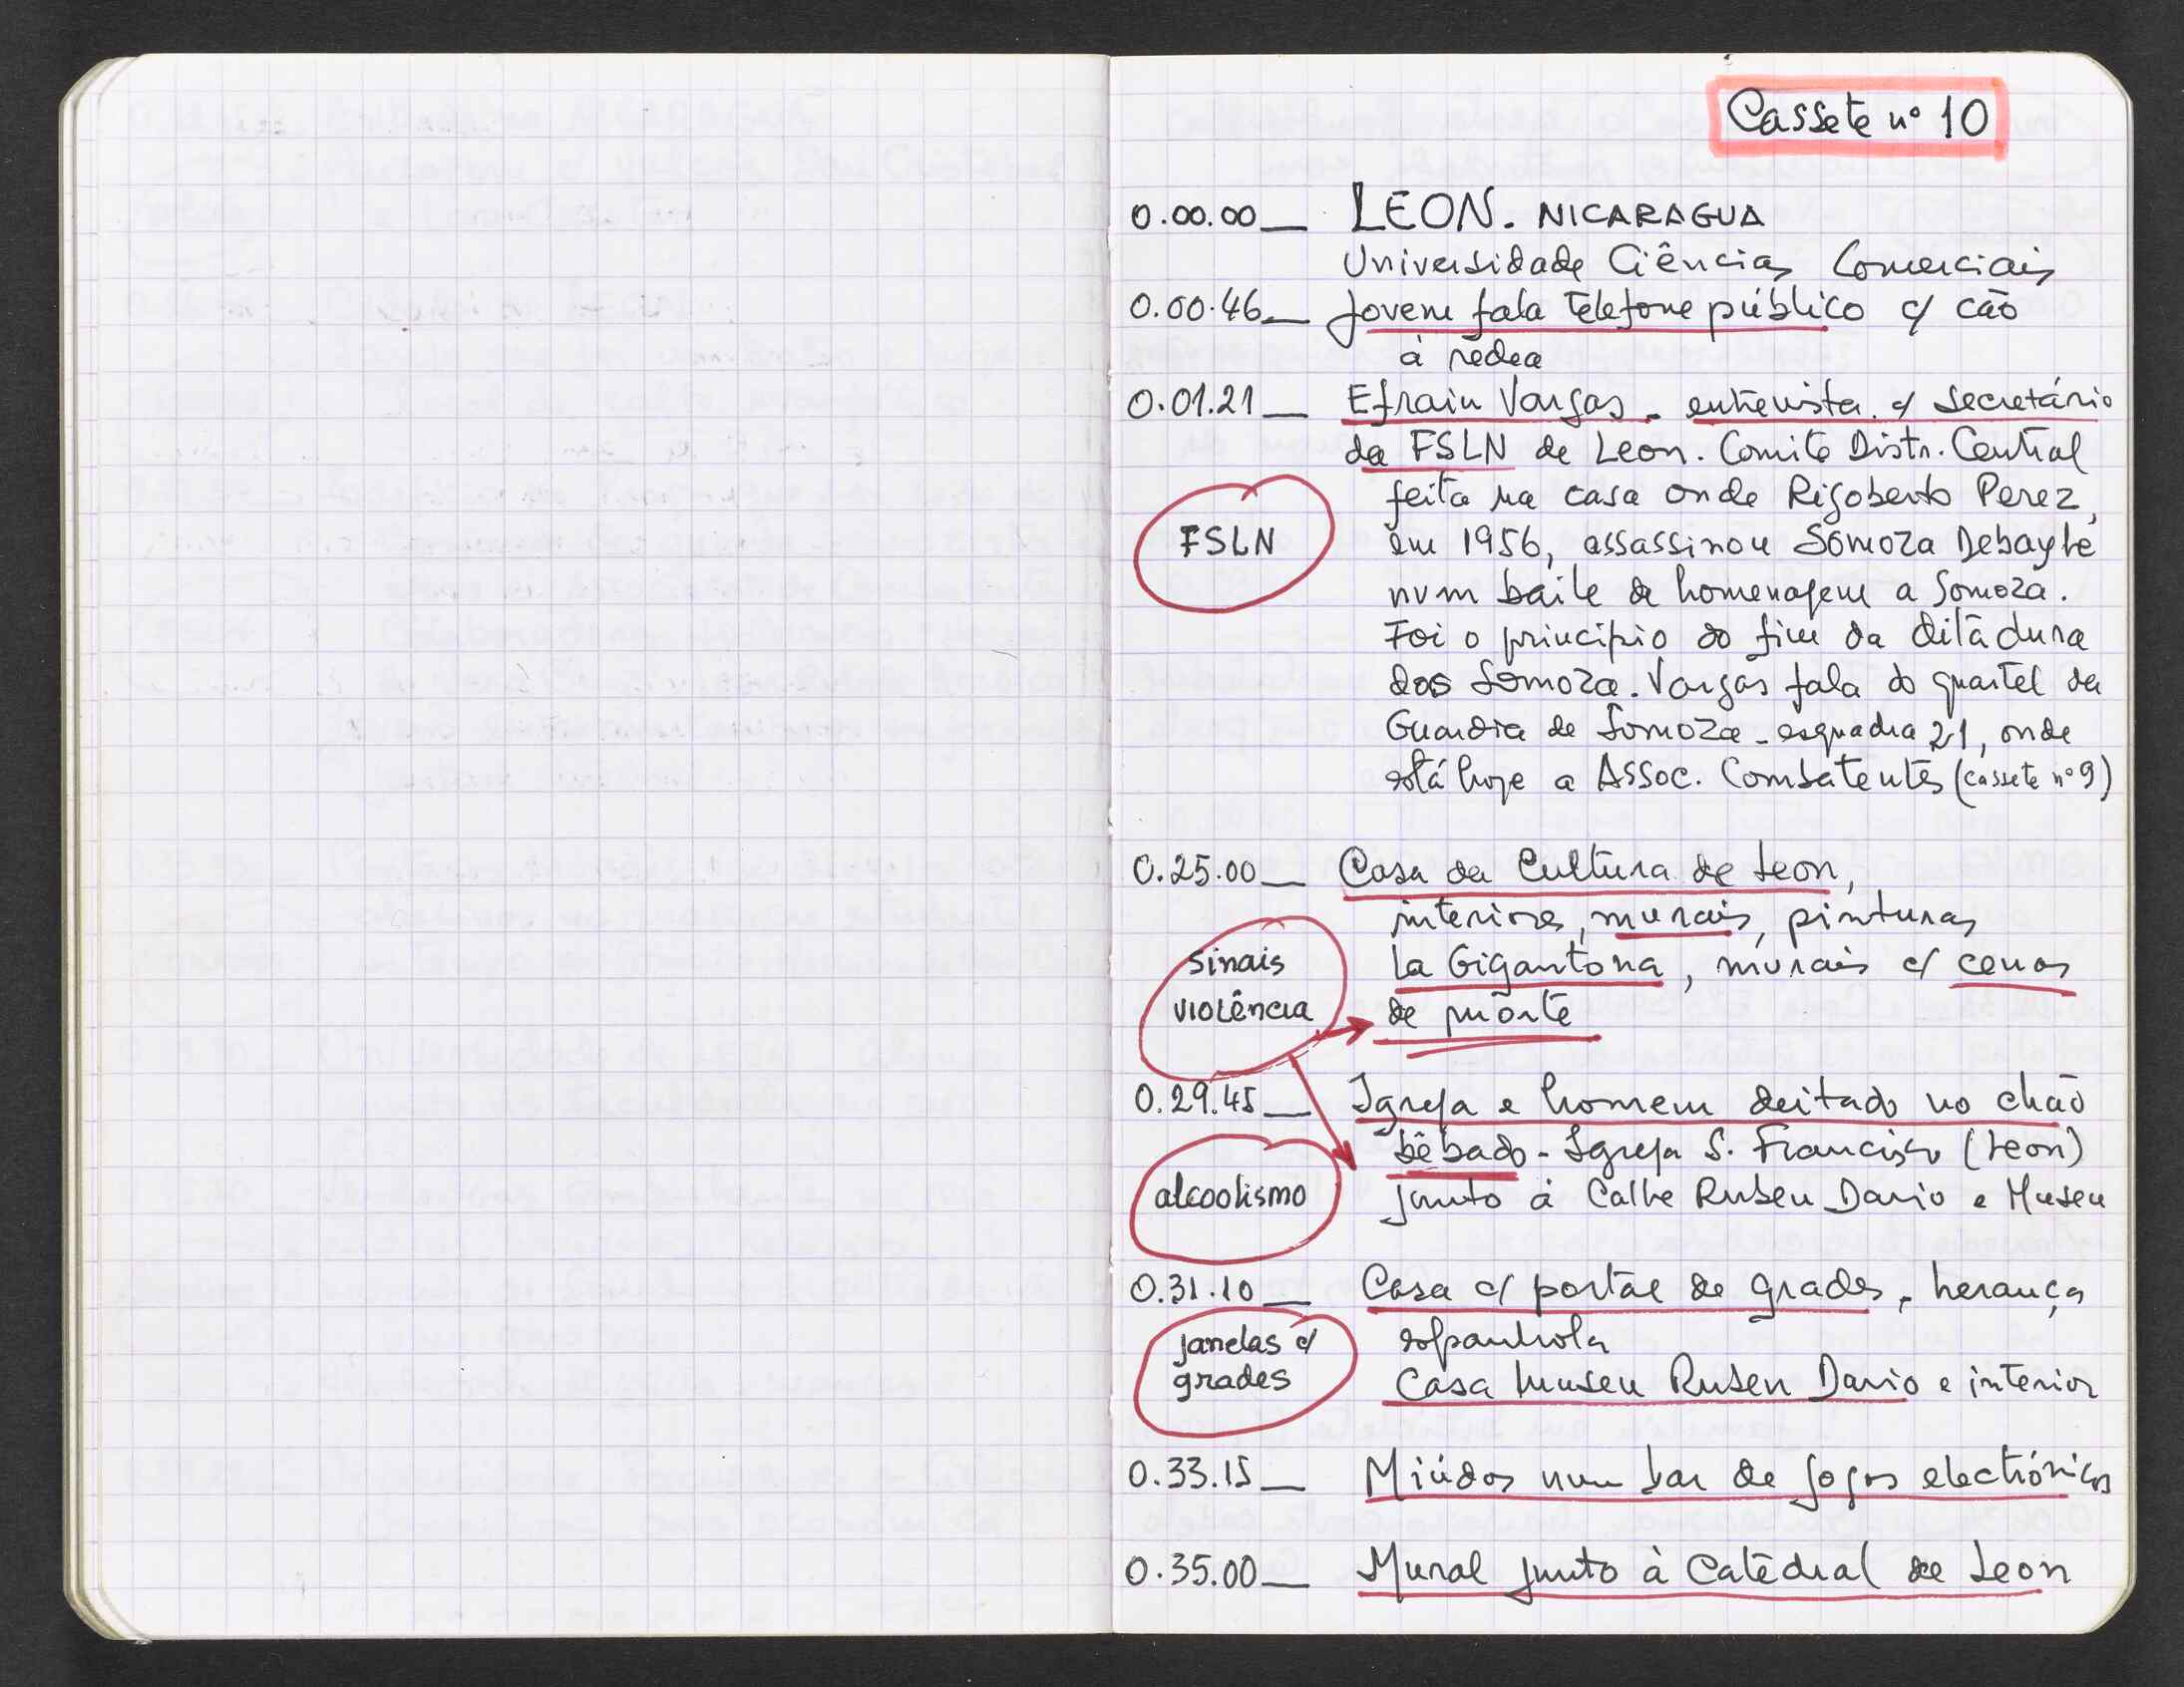 Cassete nº 10
0.00.00_ LEON. NICARAGUA
Universidade Ciências Comerciais
0.00.46_ Jovem fala telefone público c/ cão
à rédea
0.01.21_ Efrain Vargas - entrevista c/ secretário
da FSLN de Leon. Comite Distr. Central
feita na casa onde Rigoberto Perez,
FSLN
em 1956, assassinou Somoza Debayle
num baile de homenagem a Somoza.
Foi o principio do fim da ditadura
dos Somoza. Vargas fala do quartel da
Guardia de Somoza - esquadra 21, onde
está hoje a Assoc. Combatentes (cassete nº 9)
0.25.00_ Casa da Cultura de Leon,
interiores, murais, pinturas
sinais
violência
La Gigantona, murais c/ cenas
de morte
0.29.45_ Igreja e homem deitado no chão
bêbado - Igreja S. Francisco (Leon)
alcoolismo
junto à Calhe Ruben Dario e Museu
0.31.10_ Casa c/ portal de grades, herança
janelas c/
grades
espanhola
Casa Museu Ruben Dario e interior
0.33.15_ Miúdos num bar de jogos electrónicos
0.35.00_ Mural junto à Catedral de Leon